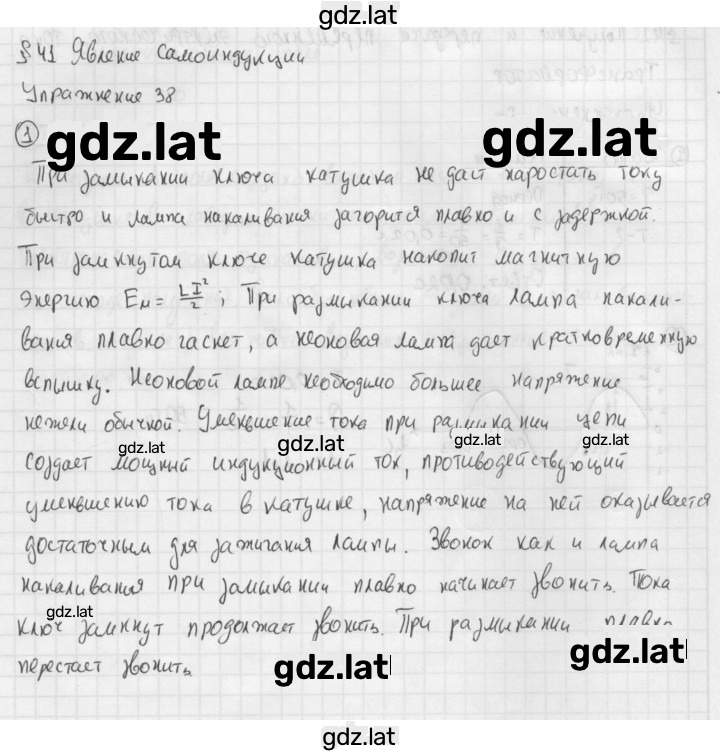 gdz.lat
§41 Явление самоиндукции
Упражнение 38
1
gdz.lat
gdz.lat
При замыкании ключа катушка не даст наростать току
быстро и лампа накаливания загорится плавно и с задержкой.
При замкнутом ключе катушка накопит магнитную
энергию Eм = LI²/2; При размыкании ключа лампа накали-
вания плавно гаснет, а неоновая лампа дает кратковременную
вспышку. Неоновой лампе необходимо большее напряжение
нежели обычной. Уменьшение тока при размыкании цепи
gdz.lat
gdz.lat
gdz.lat
gdz.lat
создает мощный индукционный ток, противодействующий
уменьшению тока в катушке, напряжение на ней оказывается
достаточным для зажигания лампы. Звонок как и лампа
накаливания при замыкании плавно начинает звонить. Пока
gdz.lat
ключ замкнут продолжает звонить. При размыкании плавно
перестает звонить.
gdz.lat
gdz.lat
gdz.lat